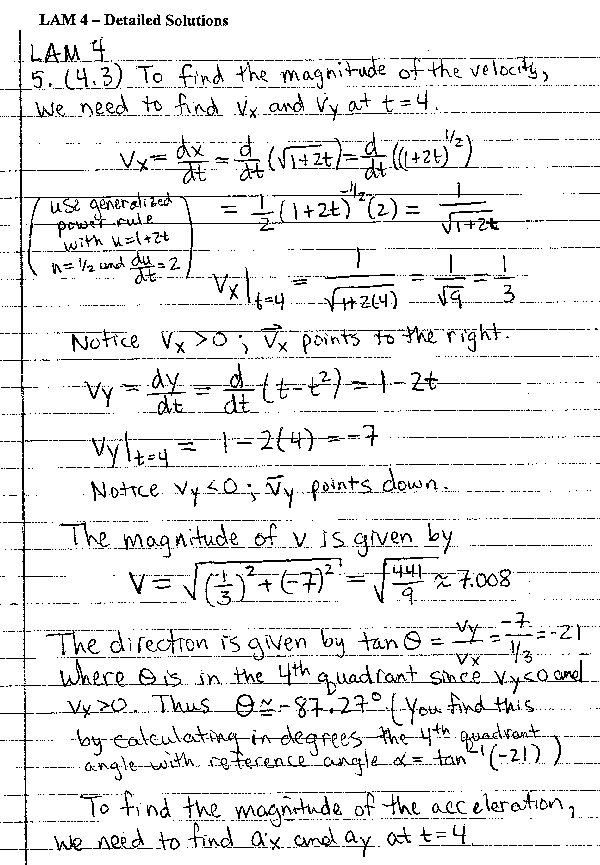 LAM 4 – Detailed Solutions
LAM 4
5. (4.3) To find the magnitude of the velocity,
we need to find Vx and Vy at t=4.
Vx = dx/dt = d/dt (√1+2t) = d/dt ((1+2t)^1/2)
(use generalized power rule with u=1+2t n=1/2 and du/dt=2)
= 1/2 (1+2t)^-1/2 (2) = 1/√1+2t
Vx|t=4 = 1/√1+2(4) = 1/√9 = 1/3
Notice Vx>0; V⃗x points to the right.
Vy = dy/dt = d/dt (t-t²) = 1-2t
Vy|t=4 = 1-2(4) = -7
Notice Vy<0; V⃗y points down.
The magnitude of v is given by
V = √(1/3)²+(-7)² = √441/9 ≈ 7.008
The direction is given by tan θ = Vy/Vx = -7/1/3 = -21
where θ is in the 4th quadrant since Vy<0 and
Vx>0. Thus θ ≃ -87.27° (You find this
by calculating in degrees the 4th quadrant
angle with reference angle α = tan^-1(-21))
To find the magnitude of the acceleration,
we need to find ax and ay at t=4